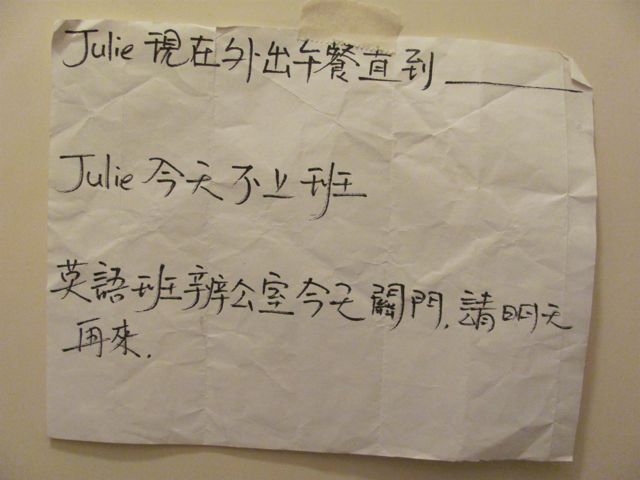 Julie 現在外出午餐直到 ______
Julie 今天不上班
英語班辦公室今天關門, 請明天
再來.